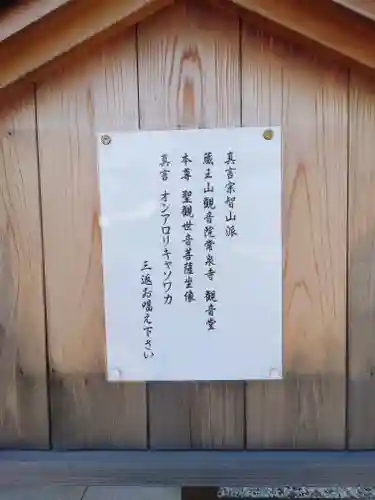 真言宗智山派
蔵王山観音院常泉寺 観音堂
本尊 聖観世音菩薩坐像
真言 オンアロリキャソワカ
三返お唱え下さい